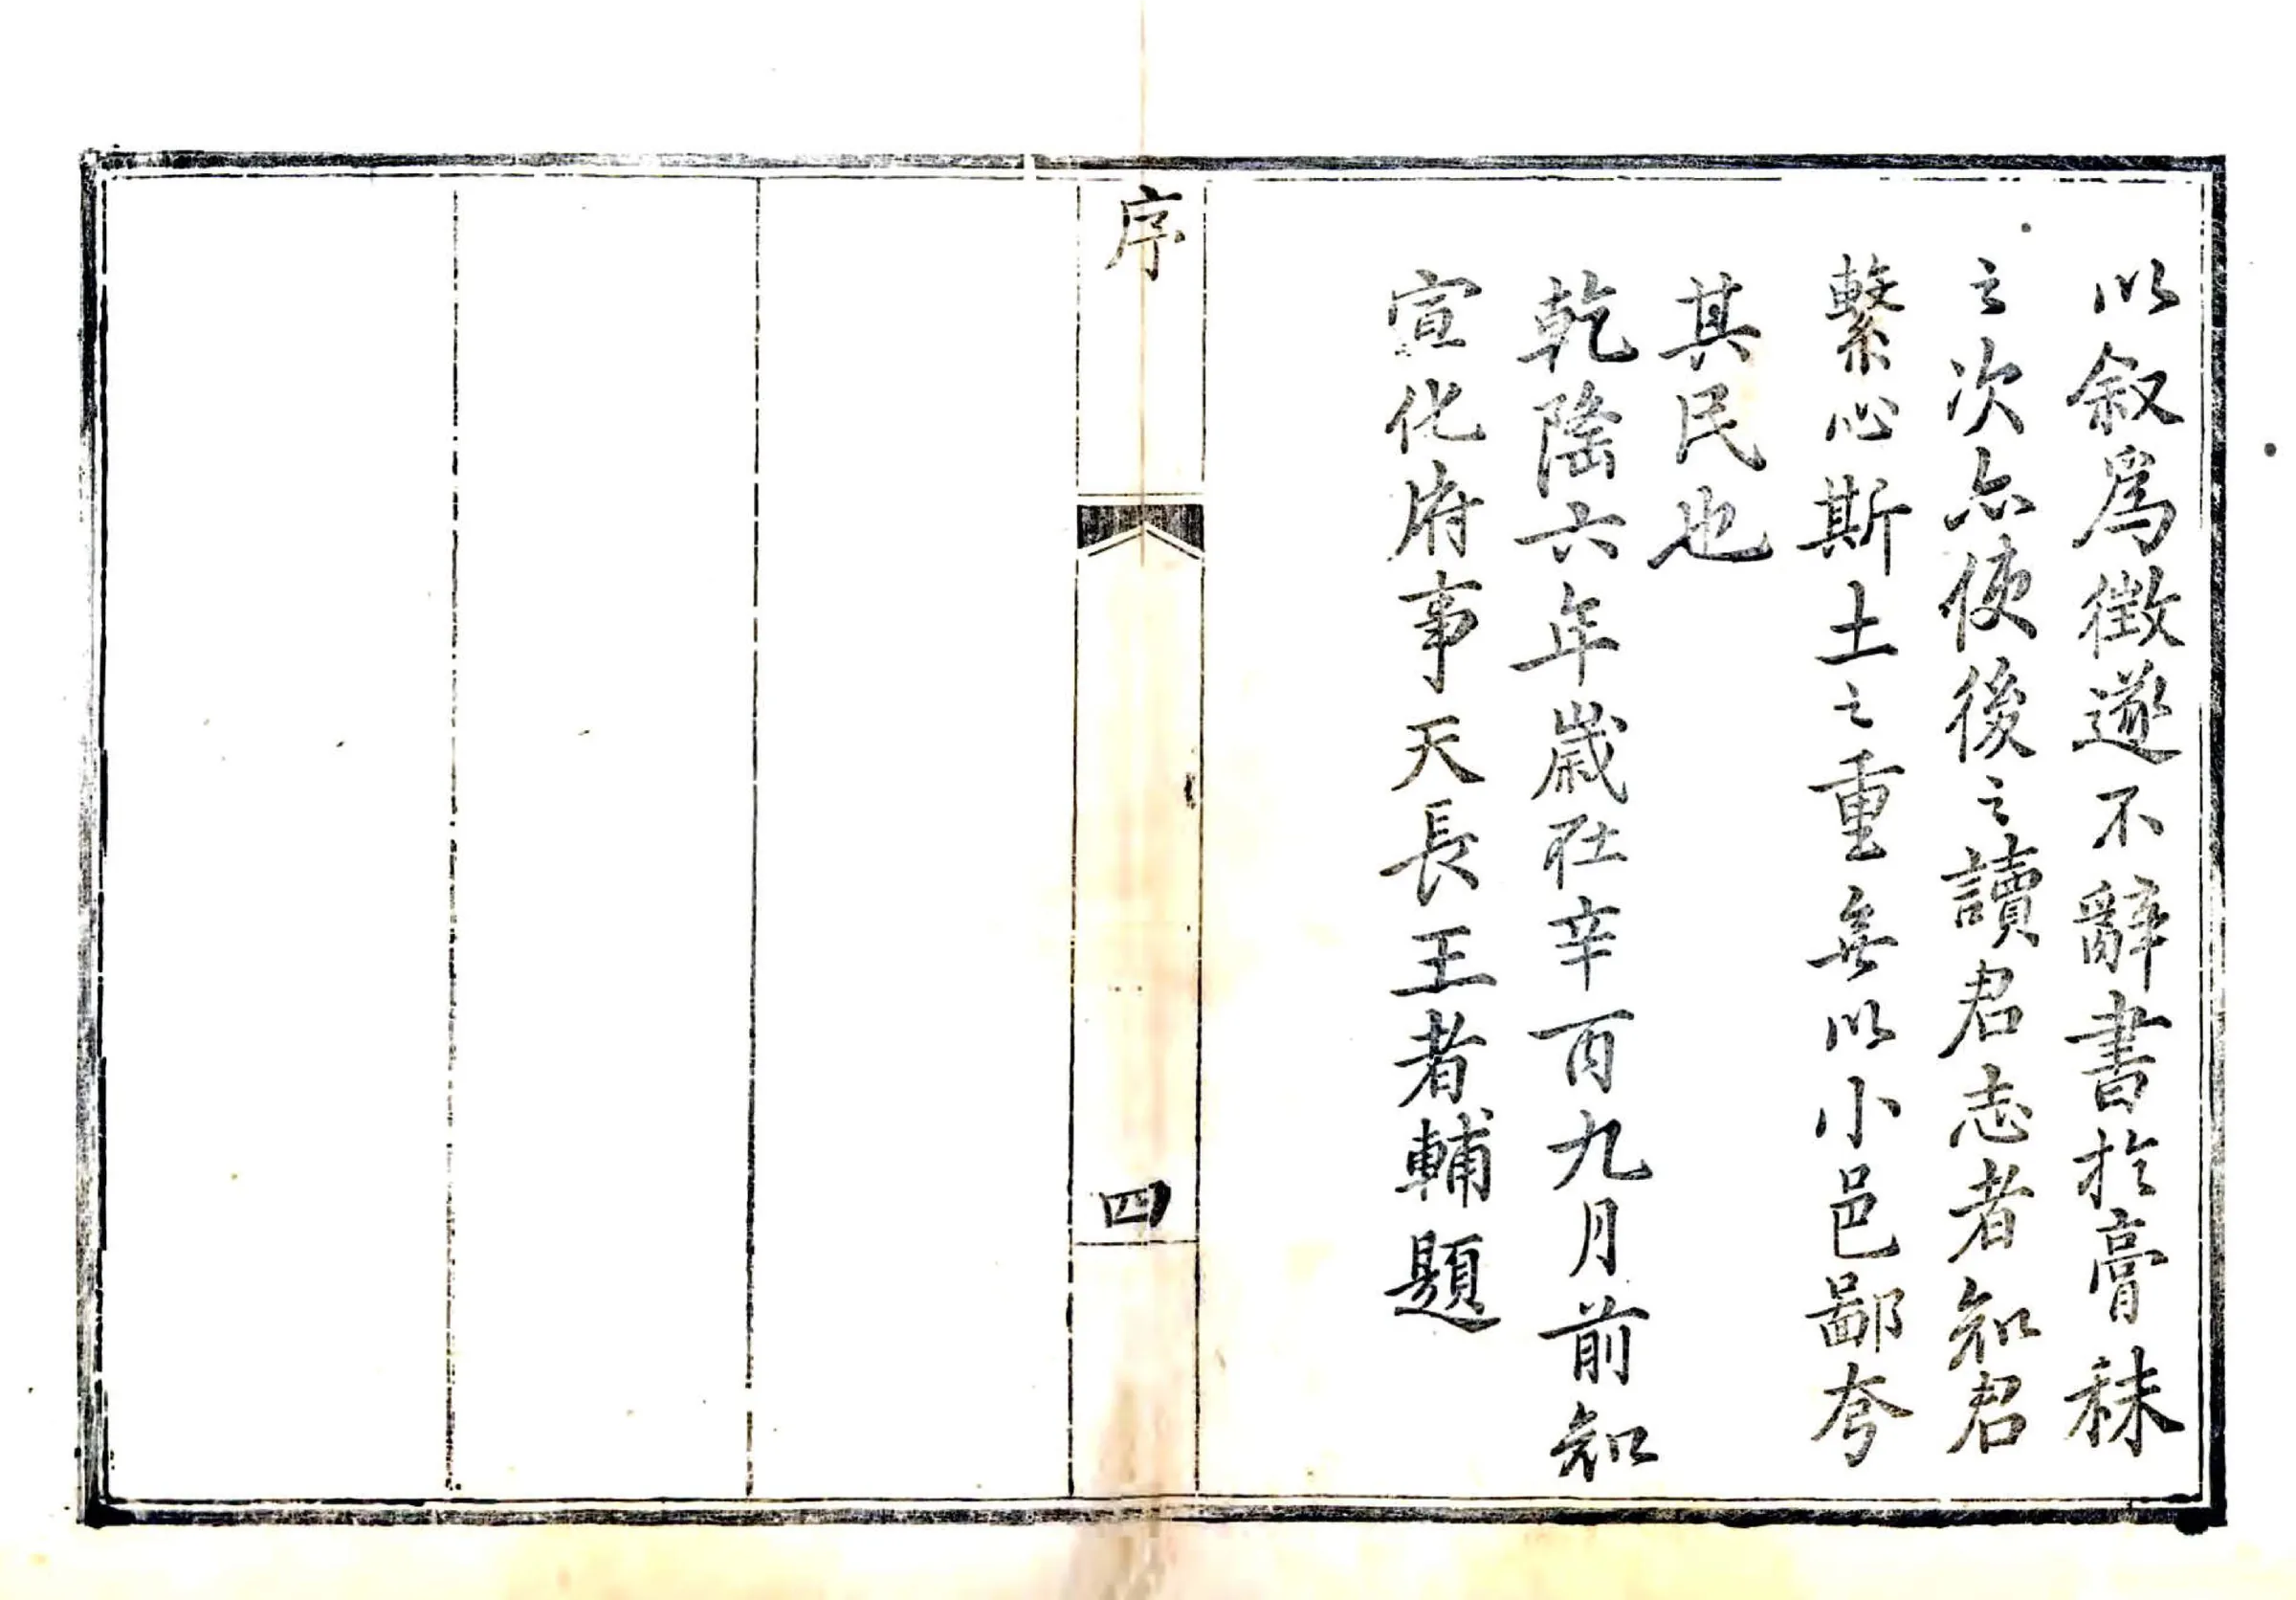 以叙爲徵遂不辭書於膏秣
之次亦使後之讀君志者知君
繫心斯土之重無以小邑鄙夸
其民也
乾隆六年歲在辛酉九月前知
宣化府事天長王者輔題
序
四